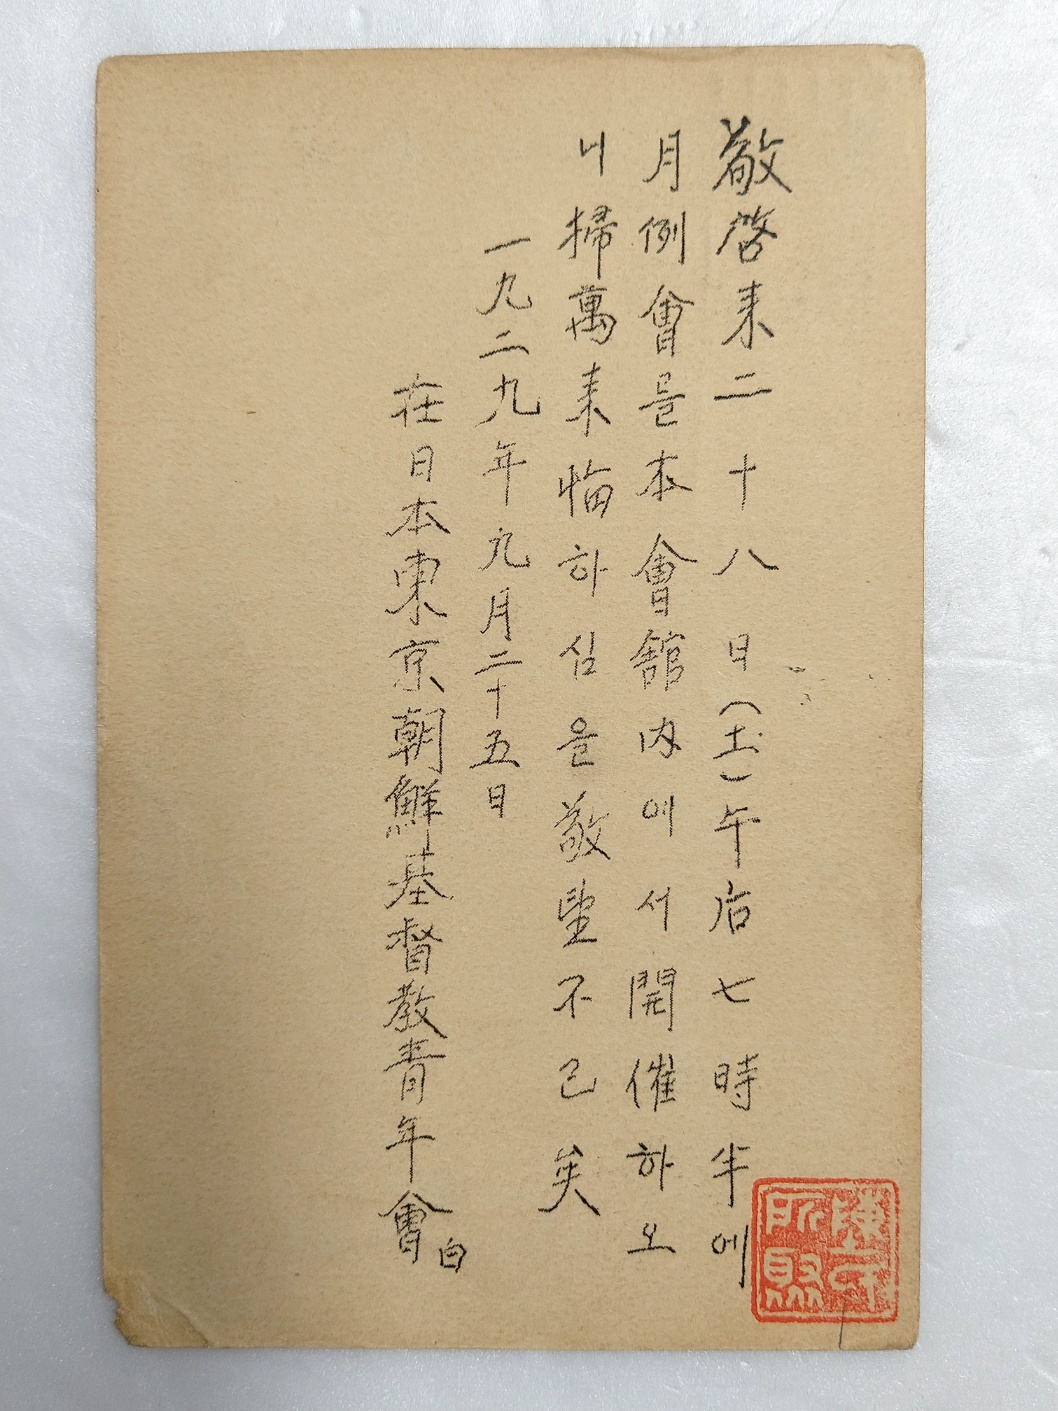 敬啓来二十八日(土)午后七時半에
月例會를本會舘内에서開催하오
니掃萬来臨하심을敬望不已矣
一九二九年九月二十五日
在日本東京朝鮮基督教青年會白